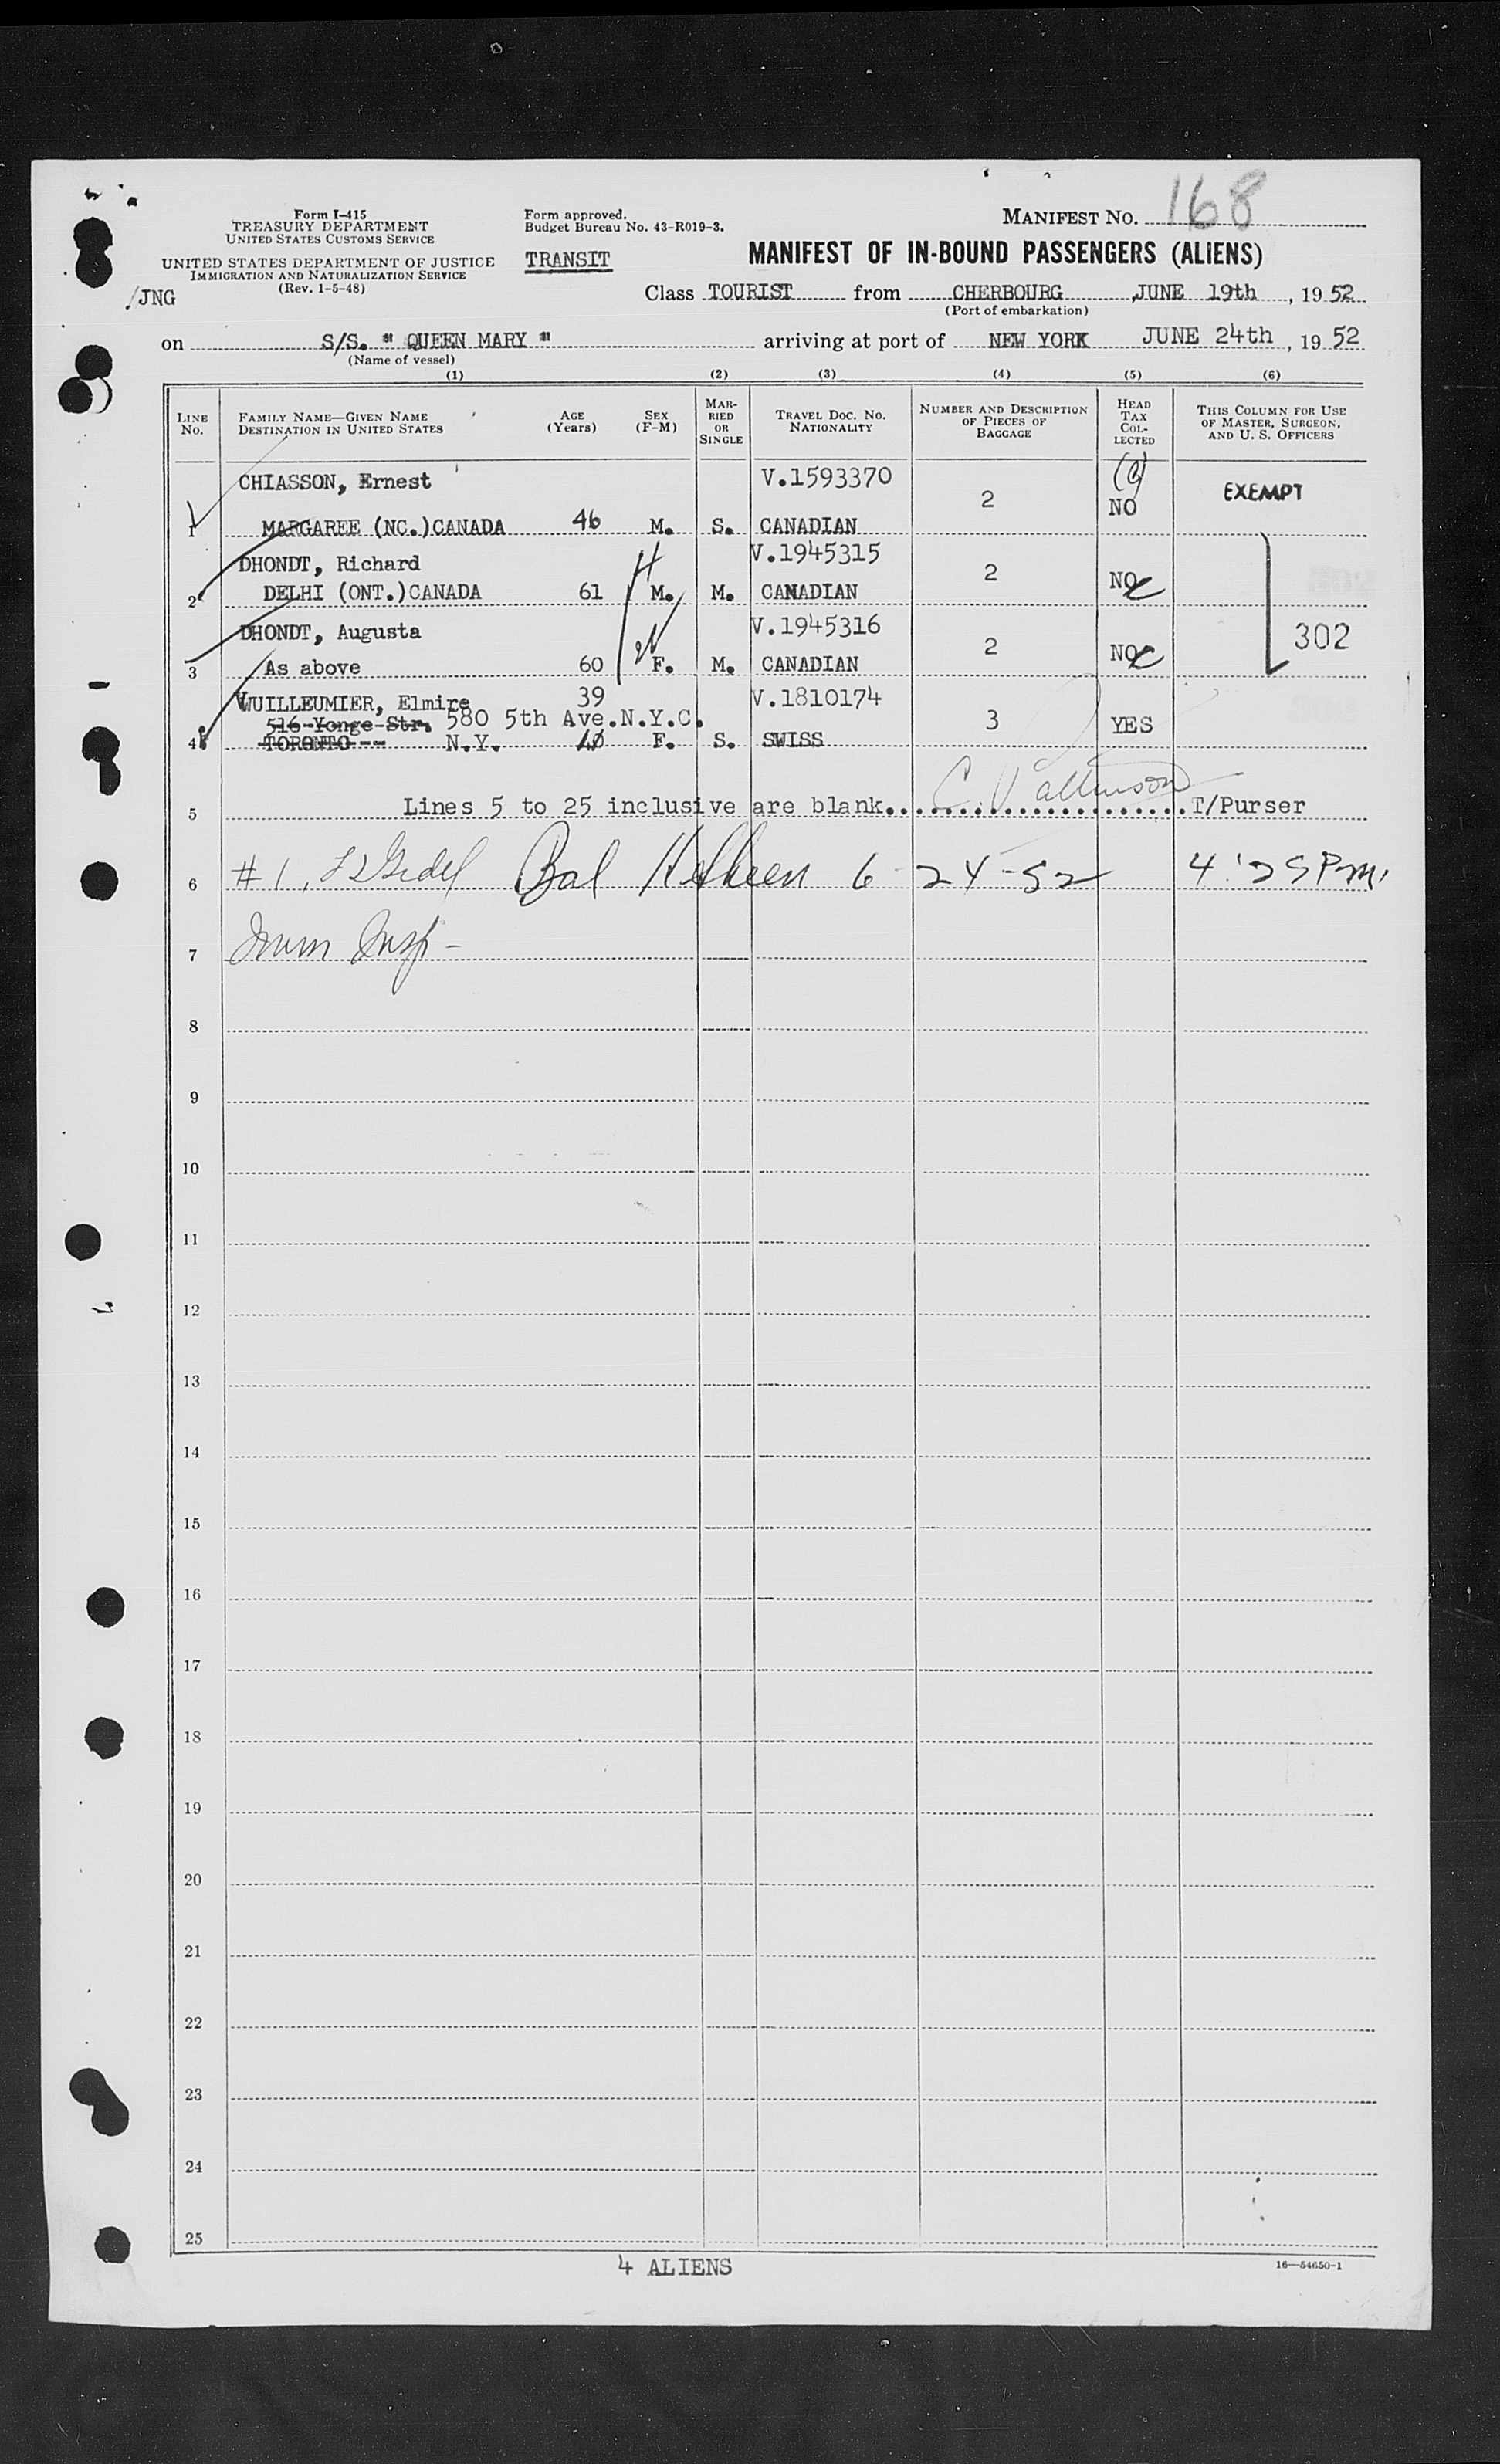 Form I-415
TREASURY DEPARTMENT
UNITED STATES CUSTOMS SERVICE
UNITED STATES DEPARTMENT OF JUSTICE
IMMIGRATION AND NATURALIZATION SERVICE
(Rev. 1-5-48)
/JNG
Form approved.
Budget Bureau No. 43-R019-3.
TRANSIT
MANIFEST NO. 168
MANIFEST OF IN-BOUND PASSENGERS (ALIENS)
Class TOURIST from CHERBOURG JUNE 19th, 1952
(Port of embarkation)
on S/S. " QUEEN MARY " arriving at port of NEW YORK JUNE 24th, 1952
(Name of vessel)
(1) (2) (3) (4) (5) (6)
LINE NO. FAMILY NAME—GIVEN NAME DESTINATION IN UNITED STATES AGE (Years) SEX (F-M) MARRIED OR SINGLE TRAVEL DOC. NO. NATIONALITY NUMBER AND DESCRIPTION OF PIECES OF BAGGAGE HEAD TAX COLLECTED THIS COLUMN FOR USE OF MASTER, SURGEON, AND U. S. OFFICERS
CHIASSON, Ernest V.1593370 2 (C) NO EXEMPT
1 MARGAREE (NC.)CANADA 46 M. S. CANADIAN
DHONDT, Richard V.1945315 2 NO
2 DELHI (ONT.)CANADA 61 M. M. CANADIAN
DHONDT, Augusta V.1945316 2 NO 302
3 As above 60 F. M. CANADIAN
VUILLEUMIER, Elmire 39 V.1810174
516 Yonge Str. 580 5th Ave.N.Y.C. 3 YES
4 TORONTO N.Y. 40 F. S. SWISS
5 Lines 5 to 25 inclusive are blank....................T/Purser
6 #1, 6-24-52 4:25 P.m.
7 Imm Insp-
8
9
10
11
12
13
14
15
16
17
18
19
20
21
22
23
24
25
4 ALIENS
16—54650-1